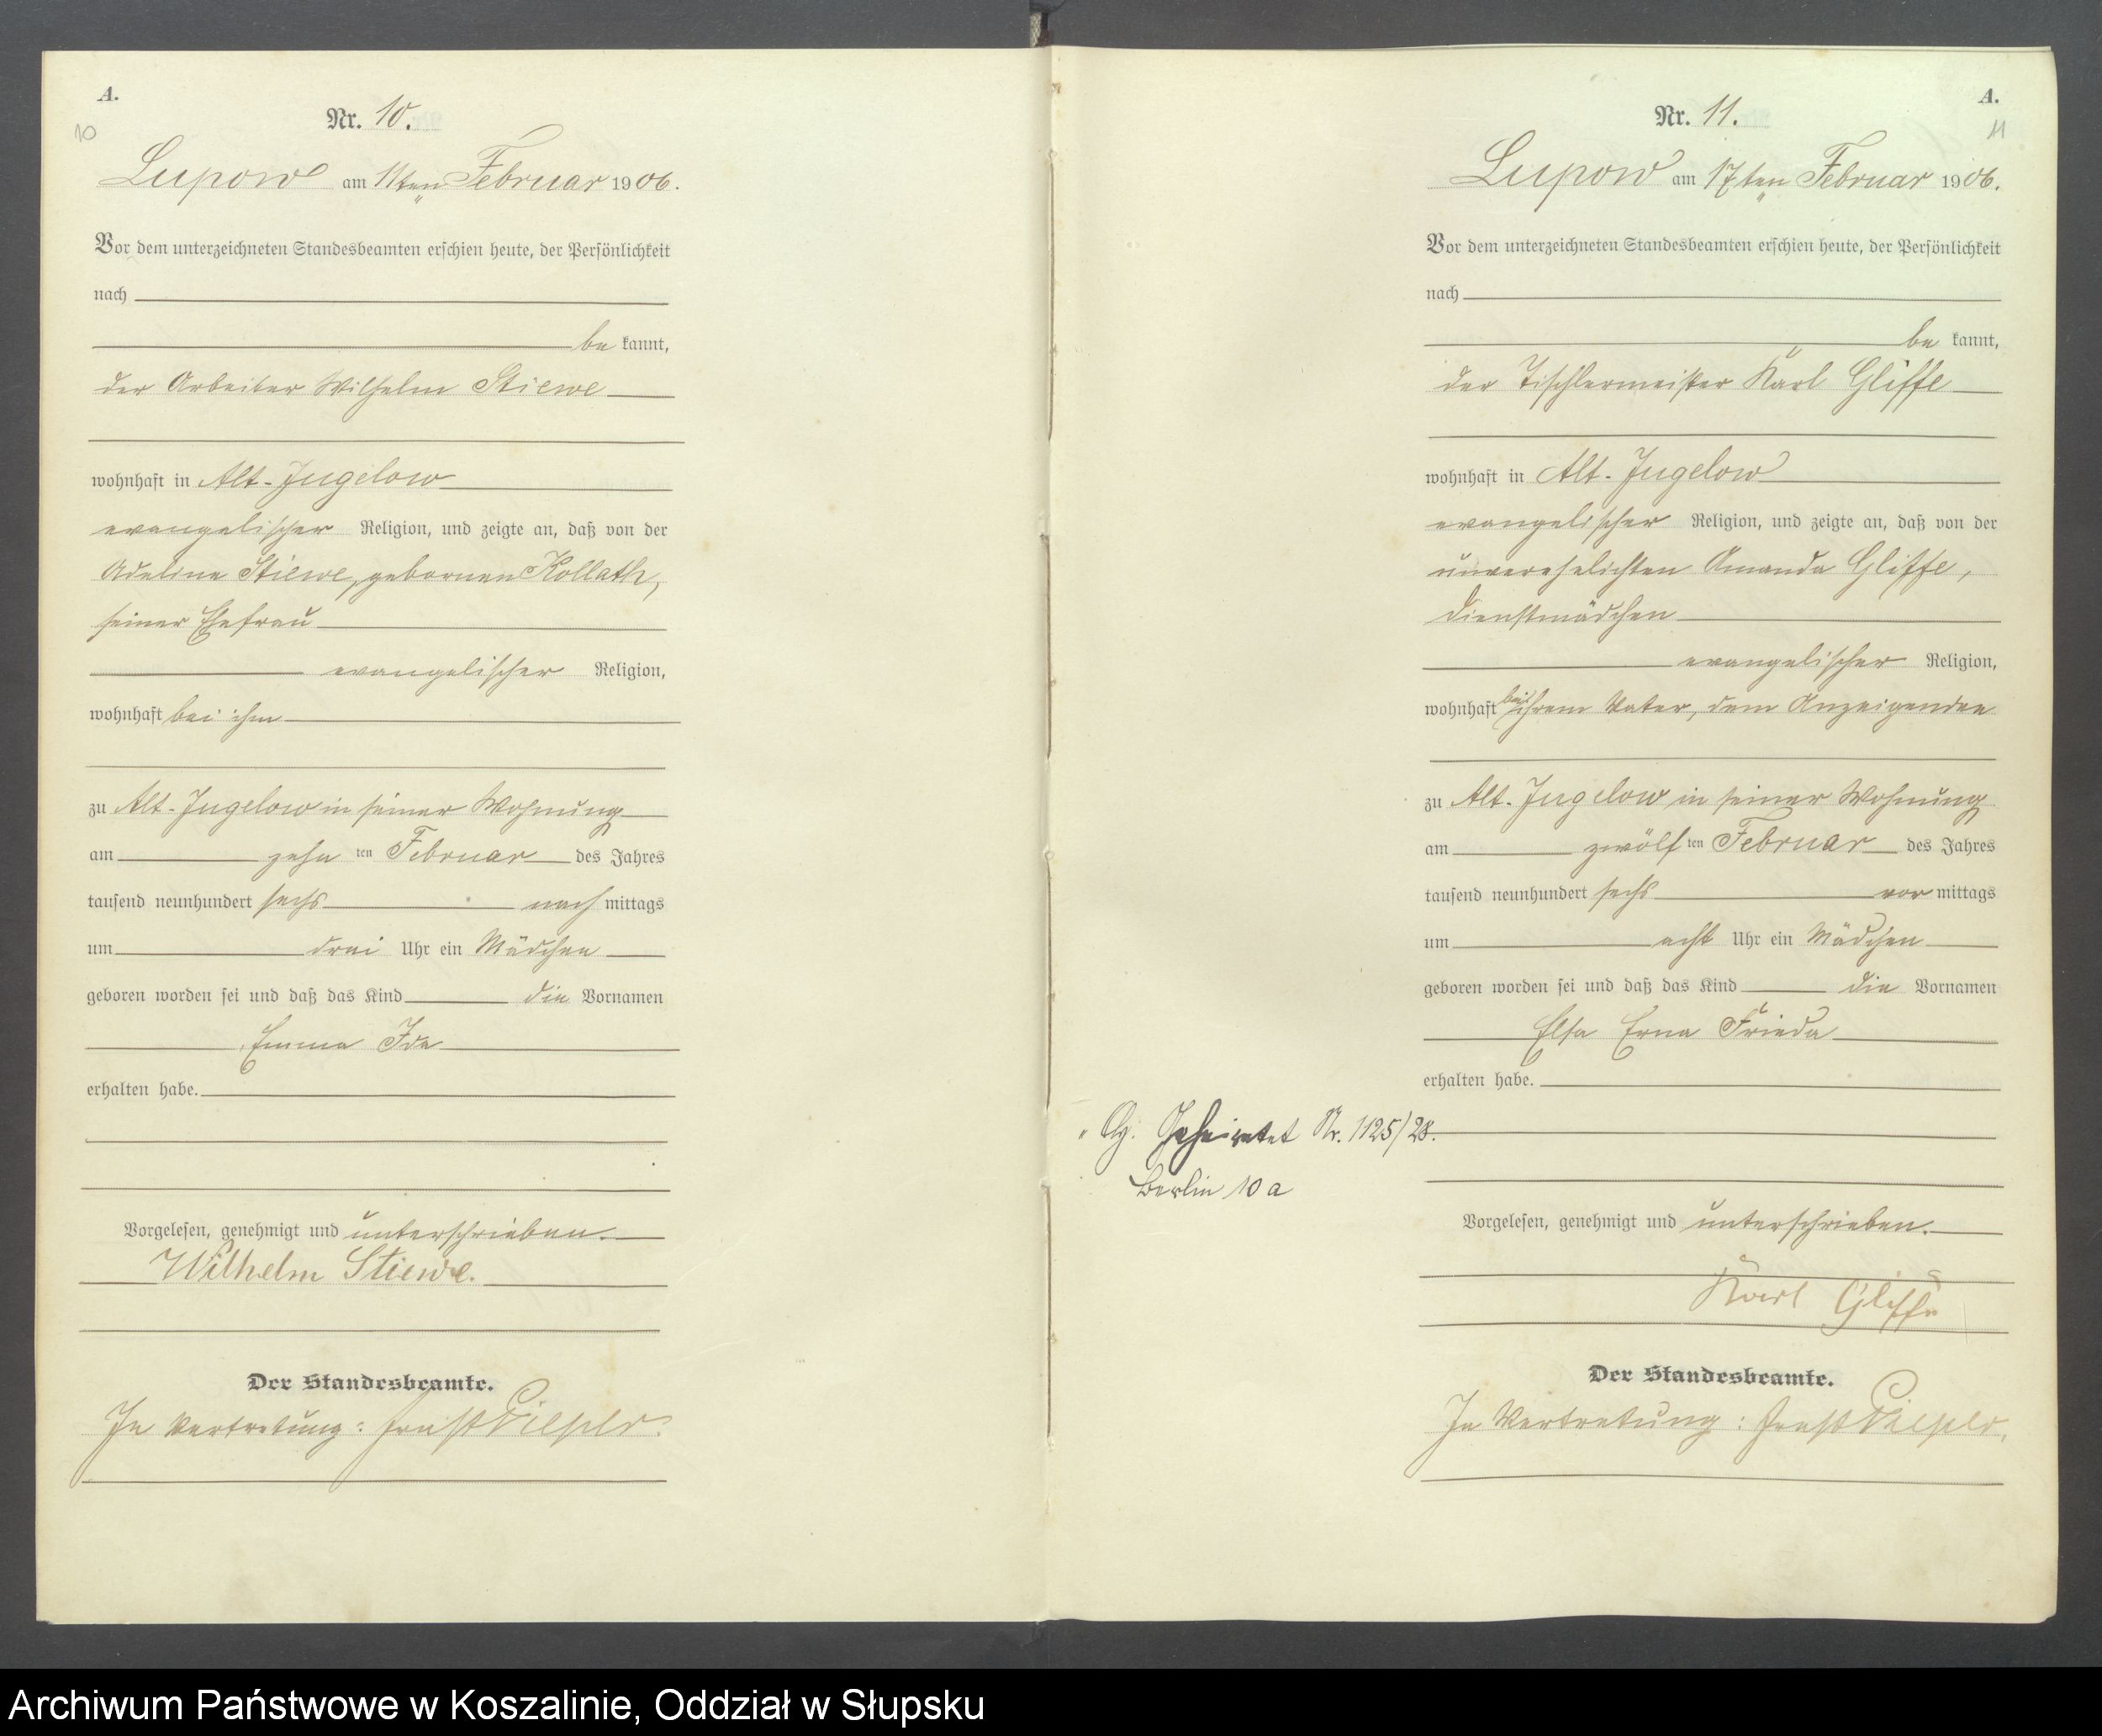 A.
10
Nr. 10.
Lupow am 11ten Februar 1906.
Vor dem unterzeichneten Standesbeamten erschien heute, der Persönlichkeit
nach
be kannt,
der Arbeiter Wilhelm Stiewe
wohnhaft in Alt-Jugelow
evangelischer Religion, und zeigte an, daß von der
Adeline Stiewe, gebornen Kollath,
seiner Ehefrau
evangelischer Religion,
wohnhaft bei ihm
zu Alt-Jugelow in seiner Wohnung
am zehn ten Februar des Jahres
tausend neunhundert sechs nach mittags
um drei Uhr ein Mädchen
geboren worden sei und daß das Kind die Vornamen
Emma Ida
erhalten habe.
Vorgelesen, genehmigt und unterschrieben.
Wilhelm Stiewe.
Der Standesbeamte.
In Vertretung: Ernst
A.
11
Nr. 11.
Lupow am 17ten Februar 1906.
Vor dem unterzeichneten Standesbeamten erschien heute, der Persönlichkeit
nach
be kannt,
der Tischlermeister Karl Gliffe
wohnhaft in Alt-Jugelow
evangelischer Religion, und zeigte an, daß von der
unverehelichten Amanda Gliffe,
Dienstmädchen
evangelischer Religion,
wohnhaft bei ihrem Vater, dem Anzeigenden
zu Alt-Jugelow in seiner Wohnung
am zwölf ten Februar des Jahres
tausend neunhundert sechs vor mittags
um acht Uhr ein Mädchen
geboren worden sei und daß das Kind die Vornamen
Elsa Erna Frieda
erhalten habe.
Geheiratet Nr. 1125/28.
Berlin 10a
Vorgelesen, genehmigt und unterschrieben.
Karl Gliffe
Der Standesbeamte.
In Vertretung: Ernst
Archiwum Państwowe w Koszalinie, Oddział w Słupsku